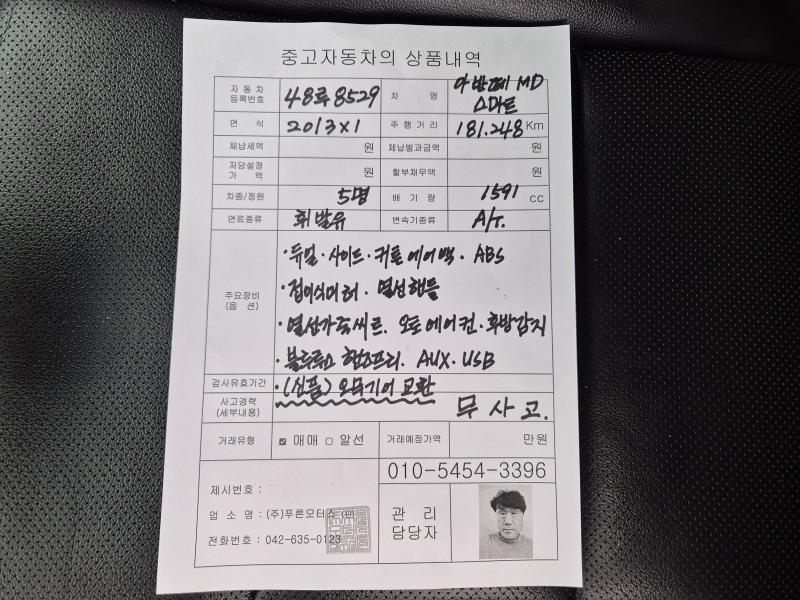 중고자동차의 상품내역
자 동 차 등록번호 48루8529 차 명 아반떼 MD 스마트
연 식 2013X1 주 행 거 리 181.248 Km
체납세액 원 체납벌과금액 원
저당설정 가 액 원 할부채무액 원
차종/정원 5명 배 기 량 1591 cc
연료종류 휘발유 변속기종류 A/T.
주요장비 (옵 션)
·듀얼·사이드·커튼에어백· ABS
·접이식미러· 열선핸들
·열선가죽씨트. 오토에어컨·후방감지
·블루투스 핸즈프리. AUX·USB
검사유효기간 ·(신품) 오무기어 교환
사고경력 (세부내용) 무 사 고.
거래유형 ☑ 매매 □ 알선 거래예정가액 만원
010-5454-3396
제시번호 :
업 소 명 : (주)푸른모터스
전화번호 : 042-635-0123
관 리 담당자